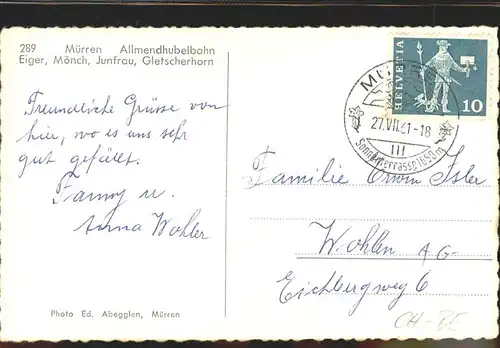 289 Mürren Allmendhubelbahn
Eiger, Mönch, Junfrau, Gletscherhorn
Freundliche Grüsse von
hier, wo es uns sehr
gut gefällt.
Fanny u.
Anna Wohler
Photo Ed. Abegglen, Mürren
HELVETIA
10
MÜRREN
27.VII.61-18
Sonnenterrasse 1650m
Familie Erwin Isler
Wohlen AG
Eichbergweg 6
CH-BE